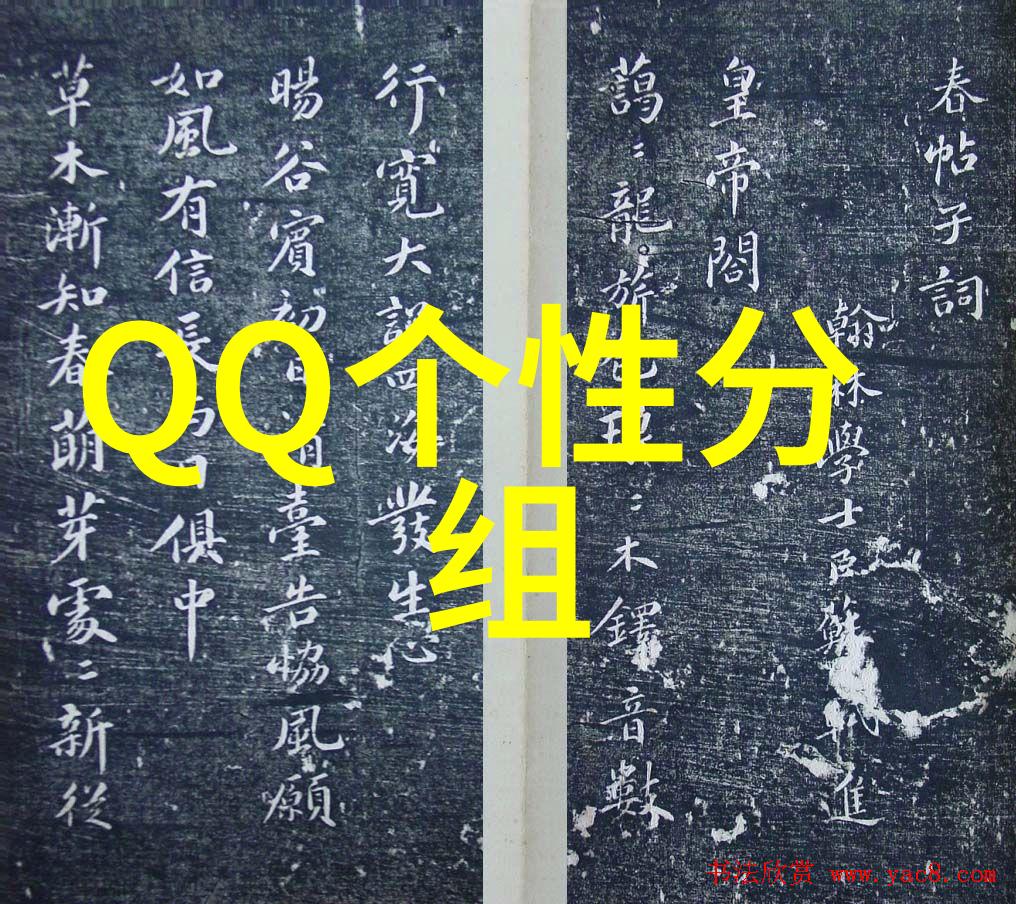 QQ个性分
组
春帖子詞
翰林學士臣蘇軾進
皇帝閣
藹〻龍旂色〻木鐸音數
行寬大詔四海發生心
暘谷賓初日清臺告協風願
如風有信長與日俱中
草木漸知春萌芽處〻新從
书法欣赏 www.yac8.com